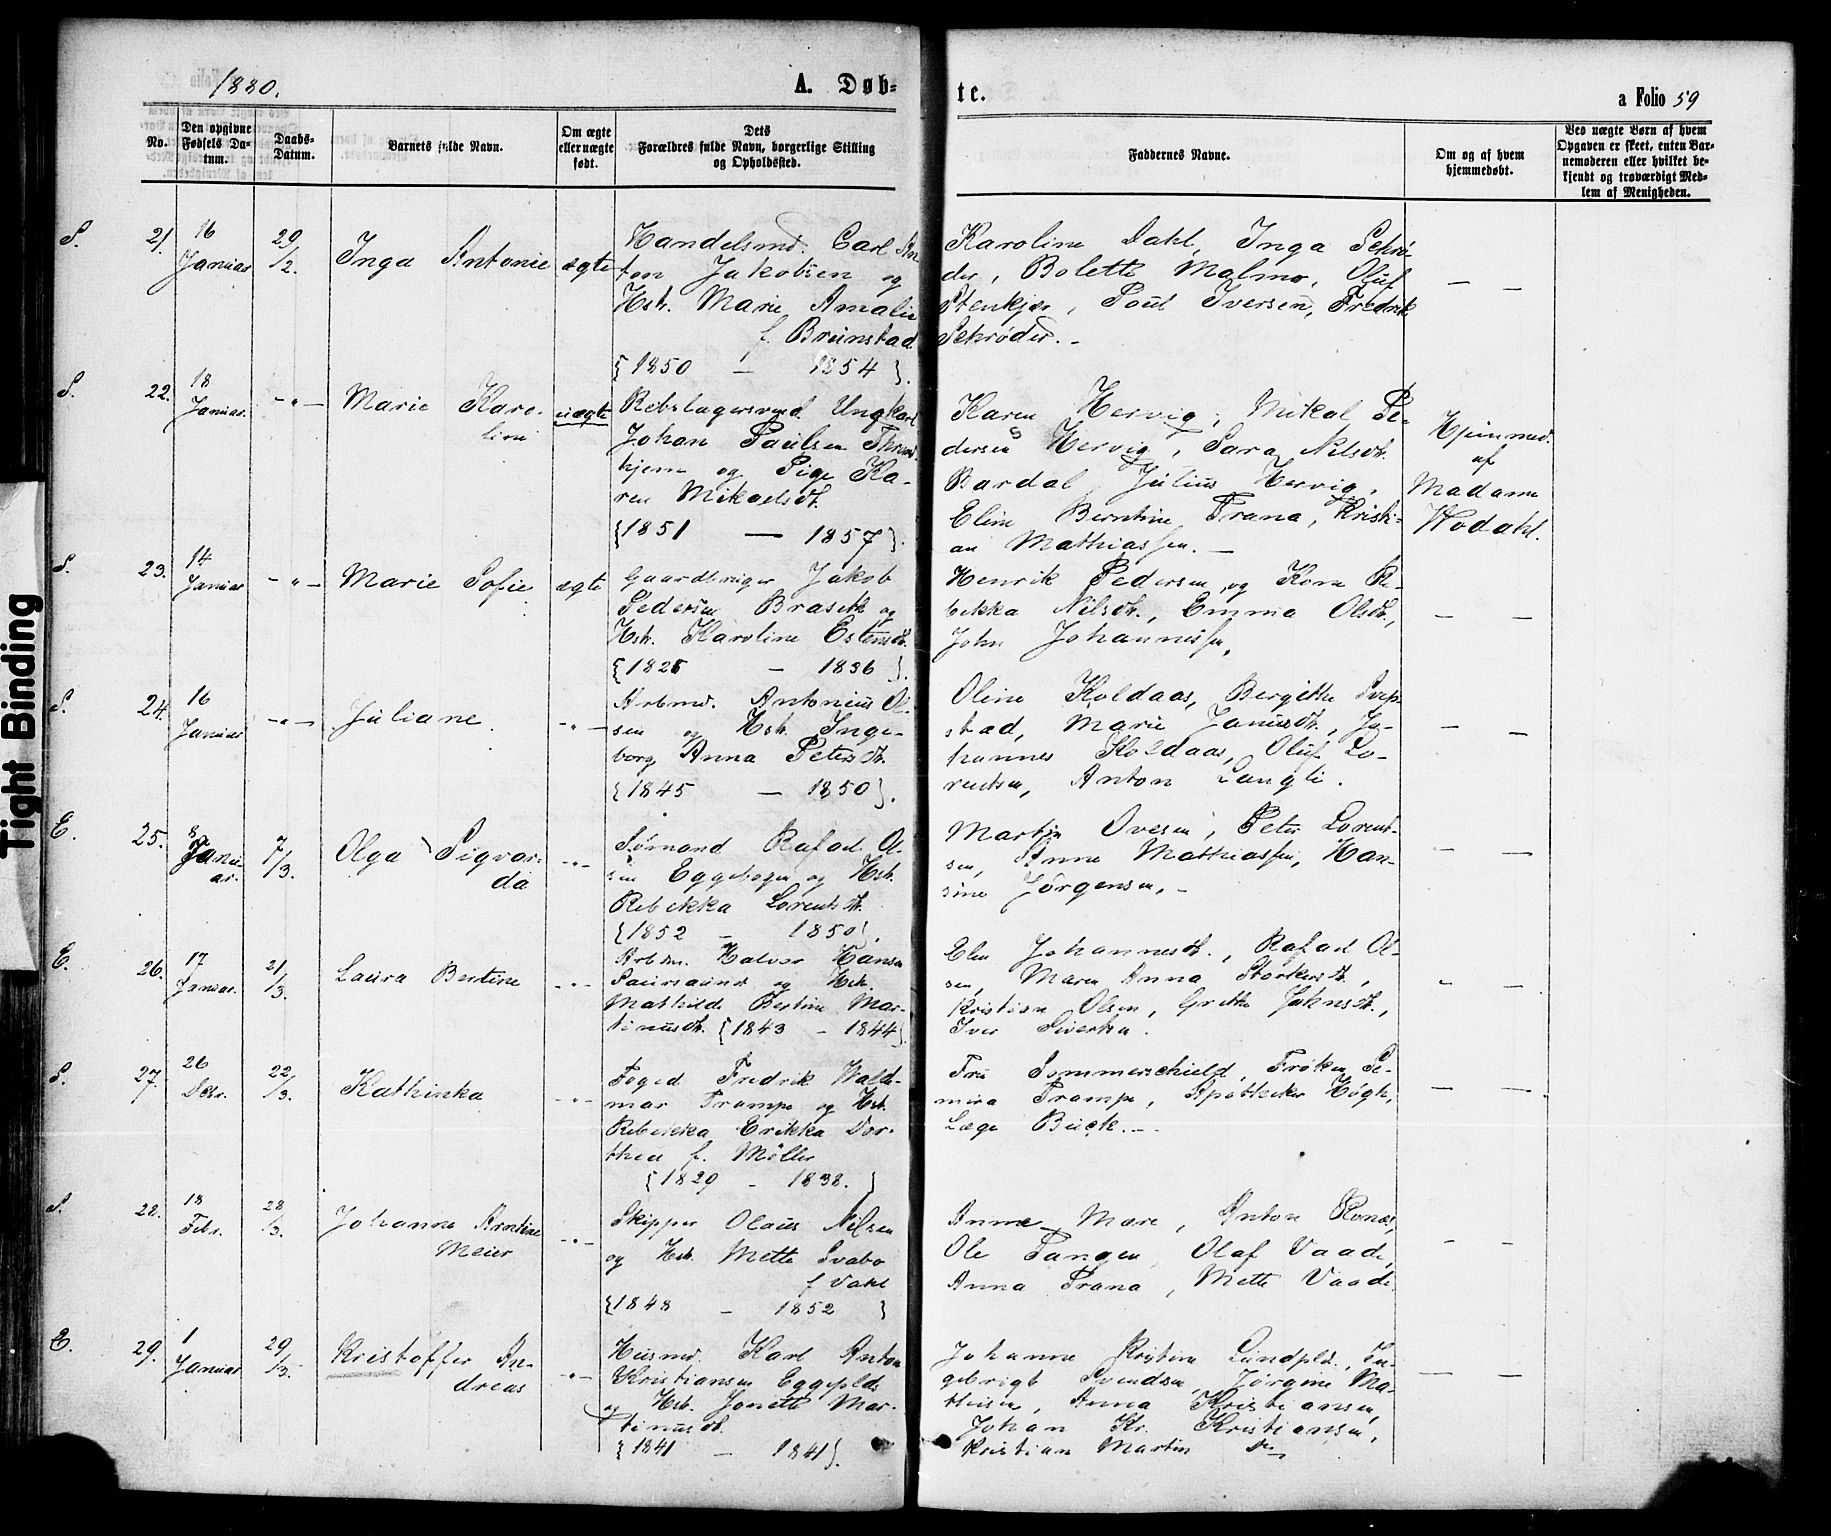 1880.
A. Døb-
te.
a Folio 59
No.
Den opgivne
Fødsels Da-
tum.
Daabs-
Datum.
Barnets fulde Navn.
Om ægte
eller uægte
født.
Dets
Forældres fulde Navn, borgerlige Stilling
og Opholdssted.
Faddernes Navne.
Om og af hvem
hjemmedøbt.
Ved uægte Børn af hvem
Opgaven er skeet, enten Bar-
nemoderen eller hvilket be-
kjendt og troværdigt Med-
lem af Menigheden.
S. 21. 16 Januar 29/2. Inga Antonie ægte
Handelsmd. Carl An-
ton Jakobsen og
Hst. Marie Amalie
f. Brunstad
{1850 — 1854}.
Karoline Dahl, Inga Schrø-
der, Bolette Malmo, Oluf
Stenkjær, Paul Iversen, Fredrik
Schrøder. -
— —
S. 22. 18 Januar. -"- Marie Karo-
line
uægte
Rebslagersvend Ungkarl
Johan Paulsen Thrond-
hjem og Pige Ka-
ren Mikaelsdt.
{1851 — 1857}.
Karen Hervig, Mikal Pe-
dersen Hervig, Sara Nilsdt.
Bardal, Julius Hervig,
Eline Berntine Trana, Kristi-
an Mathiassen. -
Hjemmed.
af
Madame
Wodahl.
S. 23. 14 Januar -"- Marie Sofie ægte
Gaardbruger Jakob
Pedersen Braseth og
Hst. Karoline Estensdt.
{182 — 1836}.
Henrik Pedersen og Kone Re-
bekka Nilsdt., Emma Olsdt.,
John Johannessen.
— —
S. 24. 16 Januar -"- Juliane. -"-
Arbmd. Antonius Ol-
sen og Hst. Inge-
borg Anna Petersdt.
{1845 — 1850}.
Oline Koldaas, Bergitte
stad, Marie Janusdt., Jo-
hannes Koldaas, Oluf Lo-
rentsen, Anton Langli.
— —
E. 25. 8 Janu-
ar. 7/3. Olga Sigvar-
da -"-
Sømand Rafael Ol-
sen Eggebogen og Hst.
Rebekka Lorentsdt.
{1852 — 1850}.
Martin Ovesen, Peter Lorent-
sen, Anne Mathiassen, Han-
sine Jørgensen. -
— —
E. 26. 17 Januar. 21/3. Laura Bertine -"-
Arbm. Halvor Hansen
og Hst.
Mathilde Bertine Mar-
tinusdt. {1843 - 1844}
Elen Johannesdt., Rafael Ol-
sen, Maren Anna Storkersdt.,
Kristian Olsen, Grethe Johnsdt.,
Iver Sivertsen.
- -
S. 27. 26 Decbr. 22/3. Kathinka -"-
Foged Fredrik Walde-
mar Trampe og Hst.
Rebekka Erikka Dor-
thea f. Møller
{1829 - 1838.}
Fru Sommerschield, Frøken Se-
mira Trampe, Apotheker Høgh,
Læge Buck. -
— —
S. 28. 18 Febr. 28/3. Johanne Arntine
Meier -"-
Skipper Olaus Nilsen
og Hst. Mette Svabo
f. Dahl
{1848 - 1852}
Anne Mære, Anton Ronæs,
Ole Tangen, Olaf Vaade,
Anna Trana, Mette Vaade.
- -
E. 29. 1 Januar 29/3. Kristoffer An-
dreas -"-
Husmd. Karl Anton
Kristiansen Eggepld.
og Hst. Jonette Mar-
tinusdt.
{1841 — 1841}.
Johanne Kristine Lundpld., In-
gebrigt Svendsen, Jørgine Ma-
thisen, Anna Kristiansen,
Johan Kr. Kristiansen,
Kristian Martin Do
— —
Tight Binding